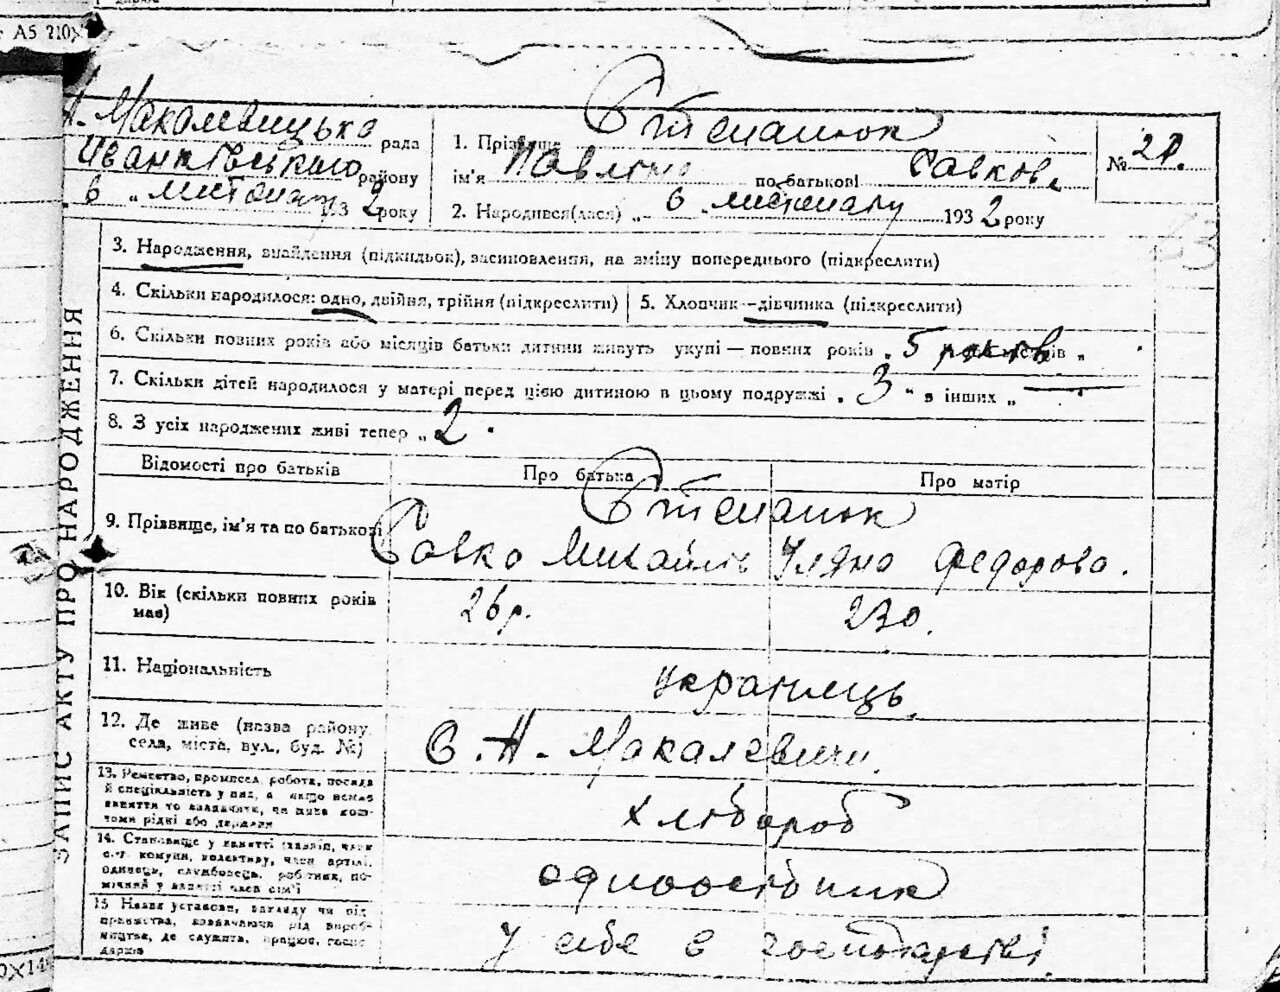 А5 210×
Н. Макалевицька рада
Іванківського району
„ 6 „ листопаду 1932 року
1. Прізвище Степанюк
ім'я Павлина по батькові Савкова
№ 21.
2. Народився(лася) „ 6 „ листопаду 1932 року
3. Народження, знайдення (підкидьок), засиновлення, на зміну попереднього (підкреслити)
4. Скільки народилося: одно, двійня, трійня (підкреслити)
5. Хлопчик—дівчинка (підкреслити)
6. Скільки повних років або місяців батьки дитини живуть укупі — повних років „ 5 років „
7. Скільки дітей народилося у матері перед цією дитиною в цьому подружжі „ 3 „ в інших „
8. З усіх народжених живі тепер „ 2 "
Відомості про батьків Про батька Про матір
9. Прізвище, ім'я та по батькові Степанюк
Савко Михайлів Уляна Федорова.
10. Вік (скільки повних років має) 26 р. 23 р.
11. Національність українець.
12. Де живе (назва району, села, міста, вул., буд. №) с. Н. Макалевичи.
13. Ремество, промисел, робота, посада й спеціальність у них, а якщо немає заняття то зазначити, чи живе коштами рідні або держави хлібороб
14. Становище у занятті член комуни, колективу, член артілі, одинець, службовець, робітник, помічний у занятті член сім'ї одноосібник
15 Назва установи, закладу чи підприємства, де служить, працює у себе в господарстві
ЗАПИС АКТУ ПРО НАРОДЖЕННЯ